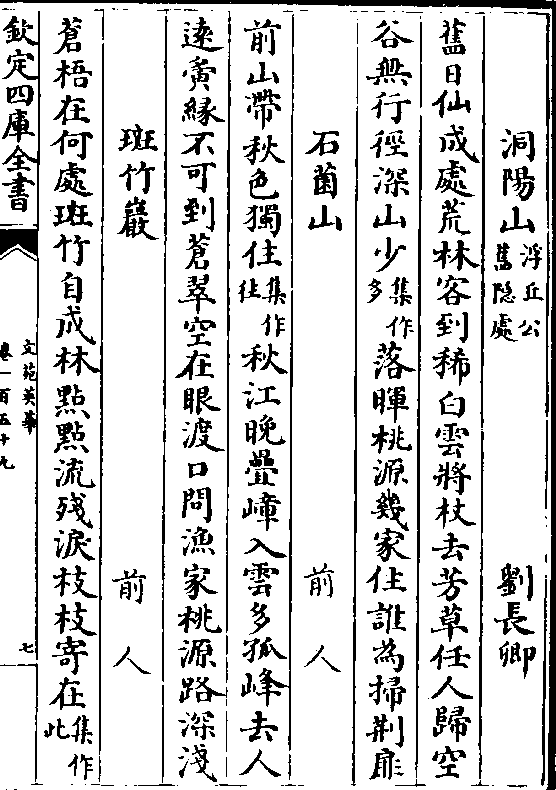 洞陽山浮丘公舊隠處 劉長卿
舊日仙成處荒林客到稀白雲將杖去芳草任人歸空
谷無行徑深山少集作多落暉桃源幾家住誰為掃荆扉
石菌山 前人
前山帶秋色獨住集作往秋江晚疊嶂入雲多孤峰去人
逺夤緣不可到蒼翠空在眼渡口問漁家桃源路深淺
斑竹巖 前人
蒼梧在何處斑竹自成林㸃㸃流殘淚枝枝寄在集作此
欽定四庫全書
文苑英華
卷一百五十九
七